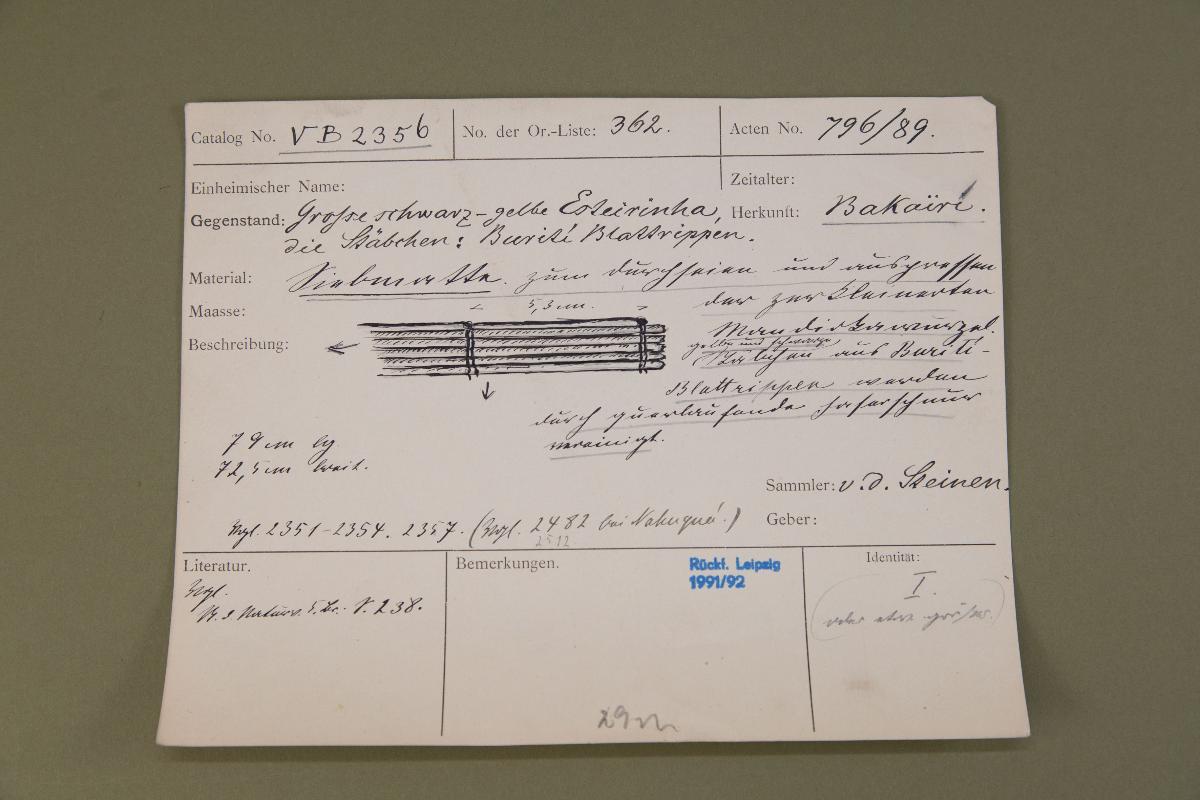 Catalog No. VB 2356
No. der Or.-Liste: 362.
Acten No. 796/89.
Einheimischer Name:
Zeitalter:
Gegenstand: Grosse schwarz-gelbe Esteirinha,
die Stäbchen: Buriti Blattrippen.
Herkunft: Bakaïrí.
Material: Siebmatte zum durchseien und auspressen
Maasse: 5,3 cm. der zerkleinerten
Beschreibung: Mandiokawurzel.
gelbe und schwarze
Stäbchen aus Buriti-
Blattrippen werden
durch querlaufende Faserschnur
vereinigt.
79 cm lg
72,5 cm breit.
Sammler: v. d. Steinen.
Vgl. 2351-2354. 2357. (Vgl. 2482 bei Nahuquá.)
2512
Geber:
Literatur.
Vgl.
S. 238.
Bemerkungen.
Rückf. Leipzig
1991/92
Identität:
I.
oder etwas größer.